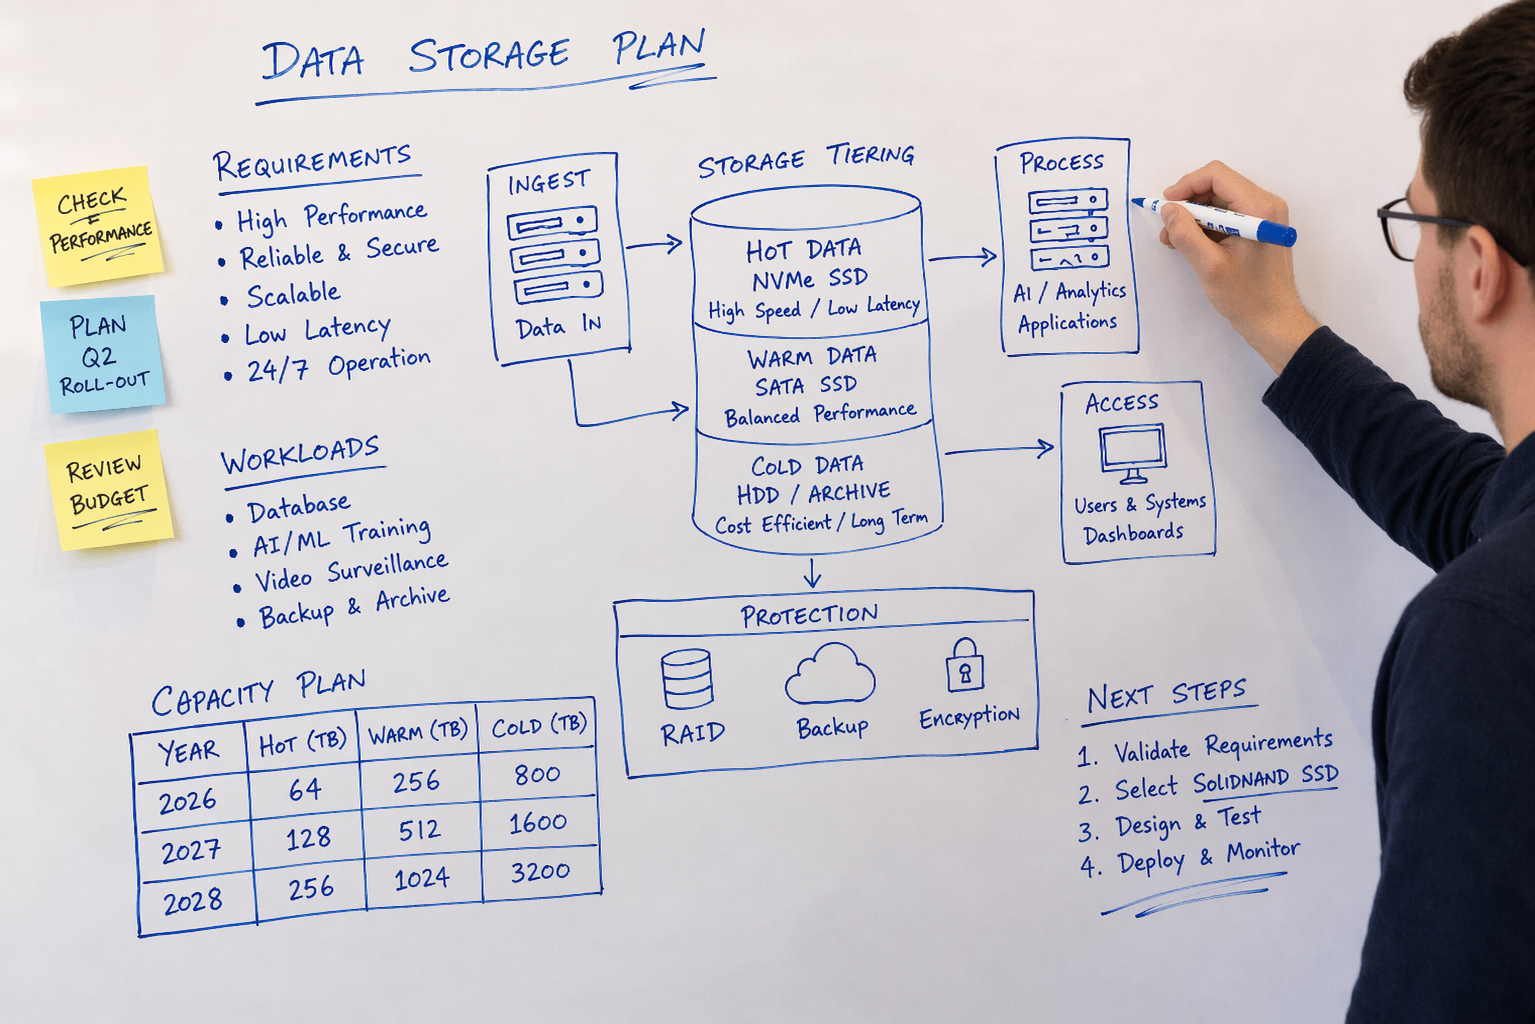 DATA STORAGE PLAN
CHECK
PERFORMANCE
PLAN
Q2
ROLL-OUT
REVIEW
BUDGET
REQUIREMENTS
• High Performance
• Reliable & Secure
• Scalable
• Low Latency
• 24/7 Operation
WORKLOADS
• Database
• AI/ML Training
• Video Surveillance
• Backup & Archive
INGEST
Data IN
STORAGE TIERING
HOT DATA
NVMe SSD
High Speed / Low Latency
WARM DATA
SATA SSD
Balanced Performance
COLD DATA
HDD / ARCHIVE
Cost Efficient / Long Term
PROCESS
AI / Analytics
Applications
ACCESS
Users & Systems
Dashboards
PROTECTION
RAID
Backup
Encryption
CAPACITY PLAN
YEAR HOT (TB) WARM (TB) COLD (TB)
2026 64 256 800
2027 128 512 1600
2028 256 1024 3200
NEXT STEPS
1. Validate Requirements
2. Select SOLIDNAND SSD
3. Design & Test
4. Deploy & Monitor